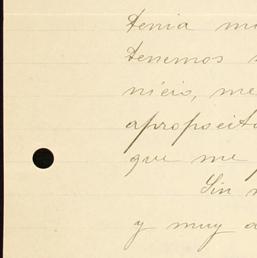 tenia mi
tenemos
nicio, me
apropocito
que me
Sin
y muy a